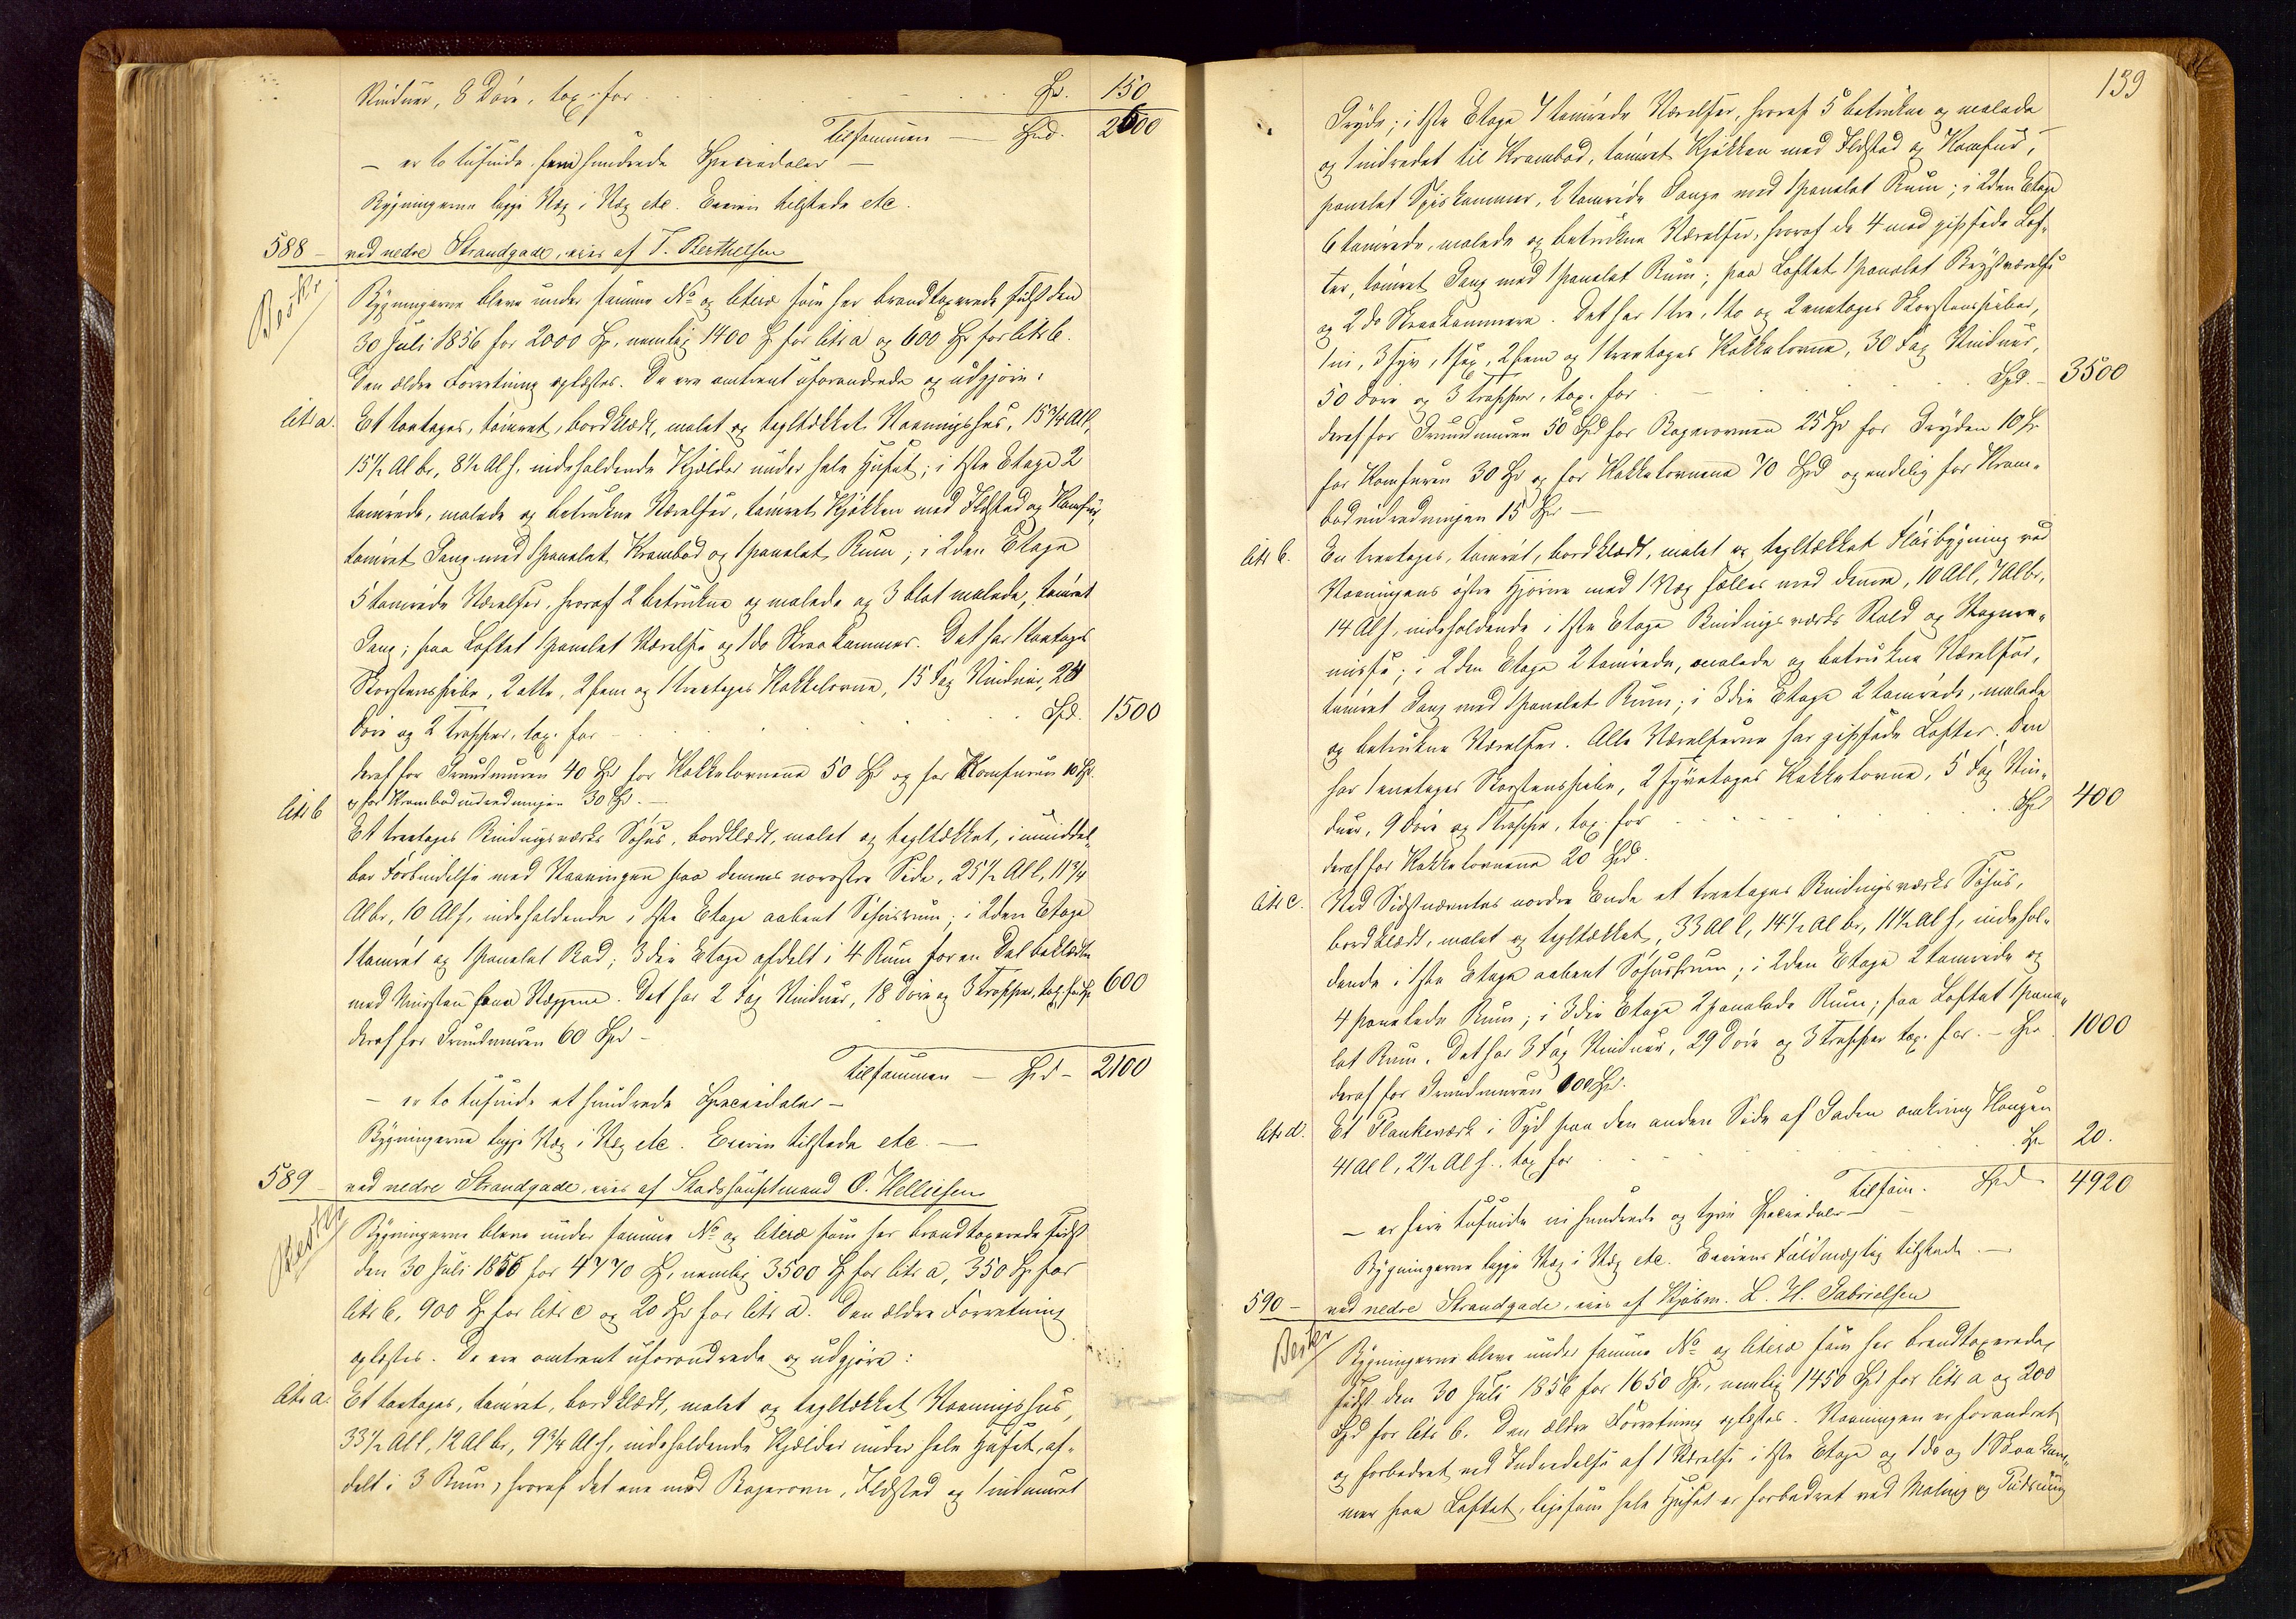 Vinduer, 8 Döre, tax. for . . . Spd. 150
Tilsammen — Spd. 2600
— er to tusinde hundrede Speciedaler —
Bygningerne ligge Væg i Væg etc. Eieren tilstede etc.
588 — ved nedre Strandgade, eies af T. Berthelsen
Beskr.
Bygningerne bleve under samme No og litera som her brandtaxerede sidst den
30 Juli 1856 for 2000 Sp, nemlig 1400 Sp for litr a og 600 Sp for litr b.
Den ældre Forretning oplæstes. De ere omtrent uforandrede og udgjöre:
litr a. Et toetages, tömret, bordklædt, malet og tegltækket Vaaningshus, 15 3/4 Al l,
15 1/2 Al br, 8 1/2 Al h, indeholdende Kjælder under hele Huset; i 1ste Etage 2
tömrede, malede og betrukne Værelser, tömret Kjökken med Ildsted og Komfur,
tömret Gang med 1 panelet Krambod og 1 panelet Rum; i 2den Etage
5 tömrede Værelser, hvoraf 2 betrukne og malede og 3 blot malede, tömret
Gang; paa Loftet 1 panelet Værelse og 1 do Skraakammer. Det har 1 toetages
Skorstenspibe, 2 otte, 2 fem og 1 treetages Kakkelovne, 15 Fag Vinduer, 24
Döre og 2 Trapper, tax. for — . . . Spd. 1500
deraf for Grundmuren 40 Spd for Kakkelovnene 50 Spd og for Komfuren 10 Sp.
og for Krambodindredningen 30 Spd. —
litr b Et treetages Bindingsværks Söhus, bordklædt, malet og tegltækket, i umiddel-
bar Forbindelse med Vaaningen paa dennes nordre Side, 25 1/2 Al l, 11 3/4
Al br, 10 Al h, indeholdende i 1ste Etage aabent Söhusrum; i 2den Etage
1 tömret og 1 panelet Bod; 3die Etage afdelt i 4 Rum for en Del beklædte
med Mursten paa Væggene. Det har 2 Fag Vinduer, 18 Döre og 3 Trapper, tax. for Sp 600
deraf for Grundmuren 60 Spd —
Tilsammen — Spd — 2100
— er to tusinde et hundrede Speciedaler —
Bygningerne ligge Væg i Væg etc. Eieren tilstede etc. —
589 — ved nedre Strandgade, eies af Stadshauptmand O. Helliesen
Beskr
Bygningerne bleve under samme No og litera som her brandtaxerede sidst
den 30 Juli 1856 for 4770 Sp, nemlig 3500 Sp for litr a, 350 Sp for
litr b, 900 Sp for litr c og 20 Sp for litr d. Den ældre Forretning
oplæstes. De ere omtrent uforandrede og udgjöre:
litr a. Et toetages, tömret, bordklædt, malet og tegltækket Vaaningshus,
33 1/2 Al l, 12 Al br, 9 3/4 Al h, indeholdende Kjælder under hele Huset, af-
delt i 3 Rum, hvoraf det ene med Bagerovn, Ildsted og 1 indmuret
139
Gryde; i 1ste Etage 7 tömrede Værelser, hvoraf 5 betrukne og malede
og 1 indredet til Krambod, tömret Kjökken med Ildsted og Komfur,
panelet Spiskammer, 2 tömrede Gange med 1 panelet Rum; i 2den Etage
6 tömrede, malede og betrukne Værelser, hvoraf de 4 med gipsede Lof-
ter, tömret Gang med 1 panelet Rum; paa Loftet 1 panelet Brystværelse
og 2 do Skraakammere. Det har 1 tre, 1 to og 2 enetages Skorstenspiber,
1 ni, 3 syv, 1 sex, 2 fem og 1 treetages Kakkelovne, 30 Fag Vinduer,
50 Döre og 3 Trapper, tax. for . . . Spd. — 3500
deraf for Grundmuren 50 Spd for Bagerovnen 25 Sp for Gryden 10 Sp
for Komfuren 30 Sp og for Kakkelovnene 70 Spd og endelig for Kram-
bodindredningen 15 Spd —
litr b. En treetages, tömret, bordklædt, malet og tegltækket Flöibygning ved
Vaaningens östre Hjörne med 1 Væg fælles med denne, 10 Al l, 7 Al br,
14 Al h, indeholdende i 1ste Etage Bindingsværks Stald og Vogn-
; i 2den Etage 2 tömrede, malede og betrukne Værelser,
tömret Gang med 1 panelet Rum; i 3die Etage 2 tömrede, malede
og betrukne Værelser. Alle Værelserne har gipsede Lofter. Den
har 1 enetages Skorstenspibe, 2 syvetages Kakkelovne, 5 Fag Vin-
duer, 9 Döre og 1 Trappe, tax. for . . . Spd 400
deraf for Kakkelovnene 20 Spd.
litr c. Ved Sidstnævntes nordre Ende et treetages Bindingsværks Söhus,
bordklædt, malet og tegltækket, 33 Al l, 14 1/2 Al br, 11 1/2 Al h, indehol-
dende i 1ste Etage aabent Söhusrum; i 2den Etage 2 tömrede og
4 panelede Rum; i 3die Etage 2 panelede Rum; paa Loftet 1 pane-
let Rum. Det har 3 Fag Vinduer, 29 Döre og 3 Trapper tax. for. — Sp 1000
deraf for Grundmuren 100 Spd.
litr d. Et Plankeværk i Syd paa den anden Side af Gaden omkring Haugen
41 Al l, 2 1/2 Al h. tax for . . . Sp 20.
Tilsam. Spd — 4920
— er fire tusinde ni hundrede og tyve Speciedaler —
Bygningerne ligge Væg i Væg etc. Eierens Fuldmægtig tilstede. —
590 — ved nedre Strandgade, eies af Kjöbm. L. H. Gabrielsen
Beskr
Bygningerne bleve under samme No og litera som her brandtaxerede
sidst den 30 Juli 1856 for 1650 Sp, nemlig 1450 Spd for litr a og 200
Spd for litr b. Den ældre Forretning oplæstes. Vaaningen er forandret
og forbedret ved Indredelse af 1 Værelse i 1ste Etage og 1 do og 1 Skraakam-
mer paa Loftet, ligesom hele Huset er forbedret ved Maling og Pudsning